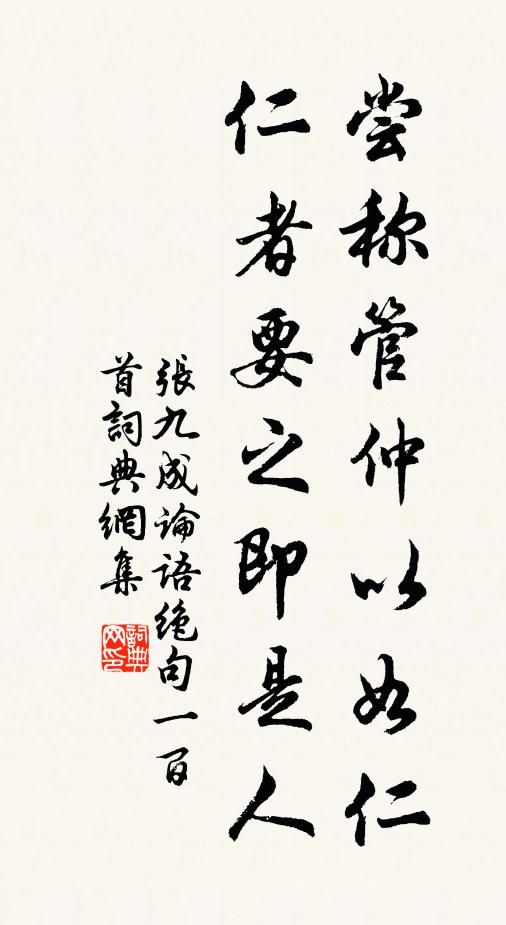 尝称管仲以如仁
仁者要之即是人
張九成論语绝句一百
首詞典網集
詞典网印